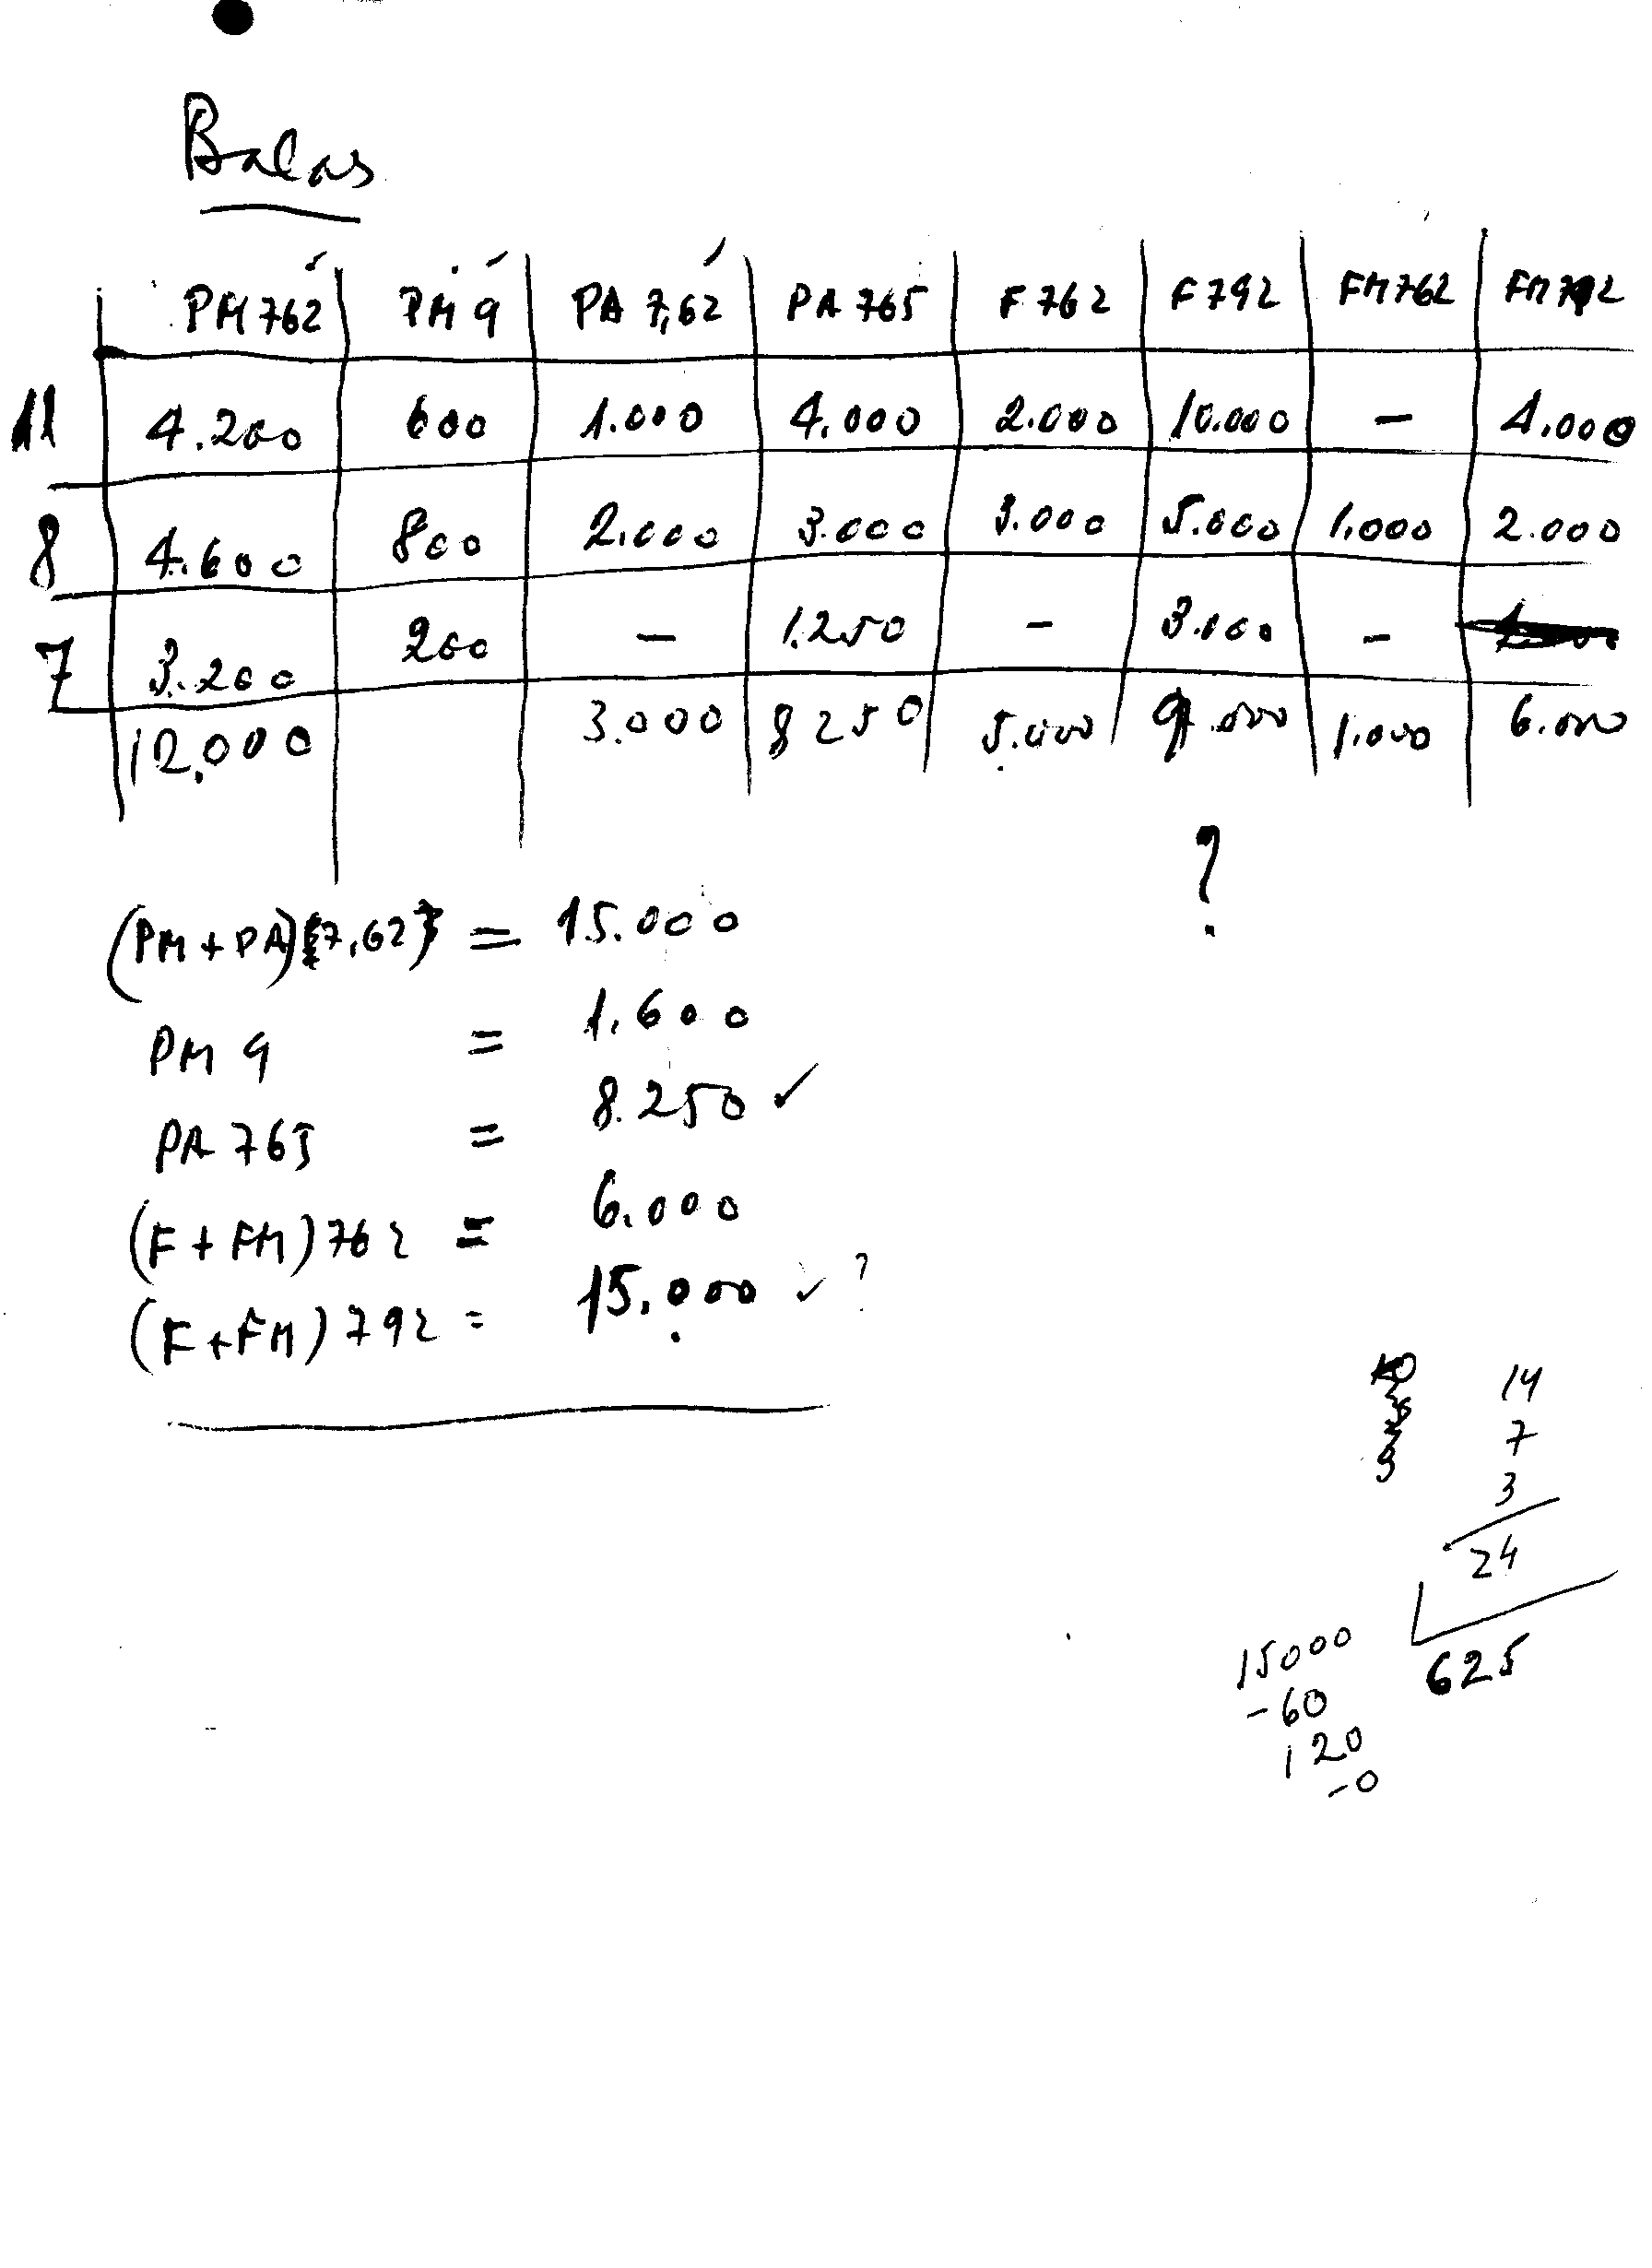 Balas
PM 762 PM 9 PA 7,62 PA 765 F 762 F 792 FM 762 FM 792
11 4.200 600 1.000 4.000 2.000 10.000 - 4.000
8 4.600 800 2.000 3.000 3.000 5.000 1.000 2.000
7 3.200 200 - 1.250 - 3.000 -
12.000 3.000 8250 5.000 9.000 1.000 6.000
?
(PM + PA) 7,62 = 15.000
PM 9 = 1.600
PA 765 = 8.250 ✓
(F + FM) 762 = 6.000
(F + FM) 792 = 15.000 ✓ ?
14
7
3
24
15000 625
-60
120
-0